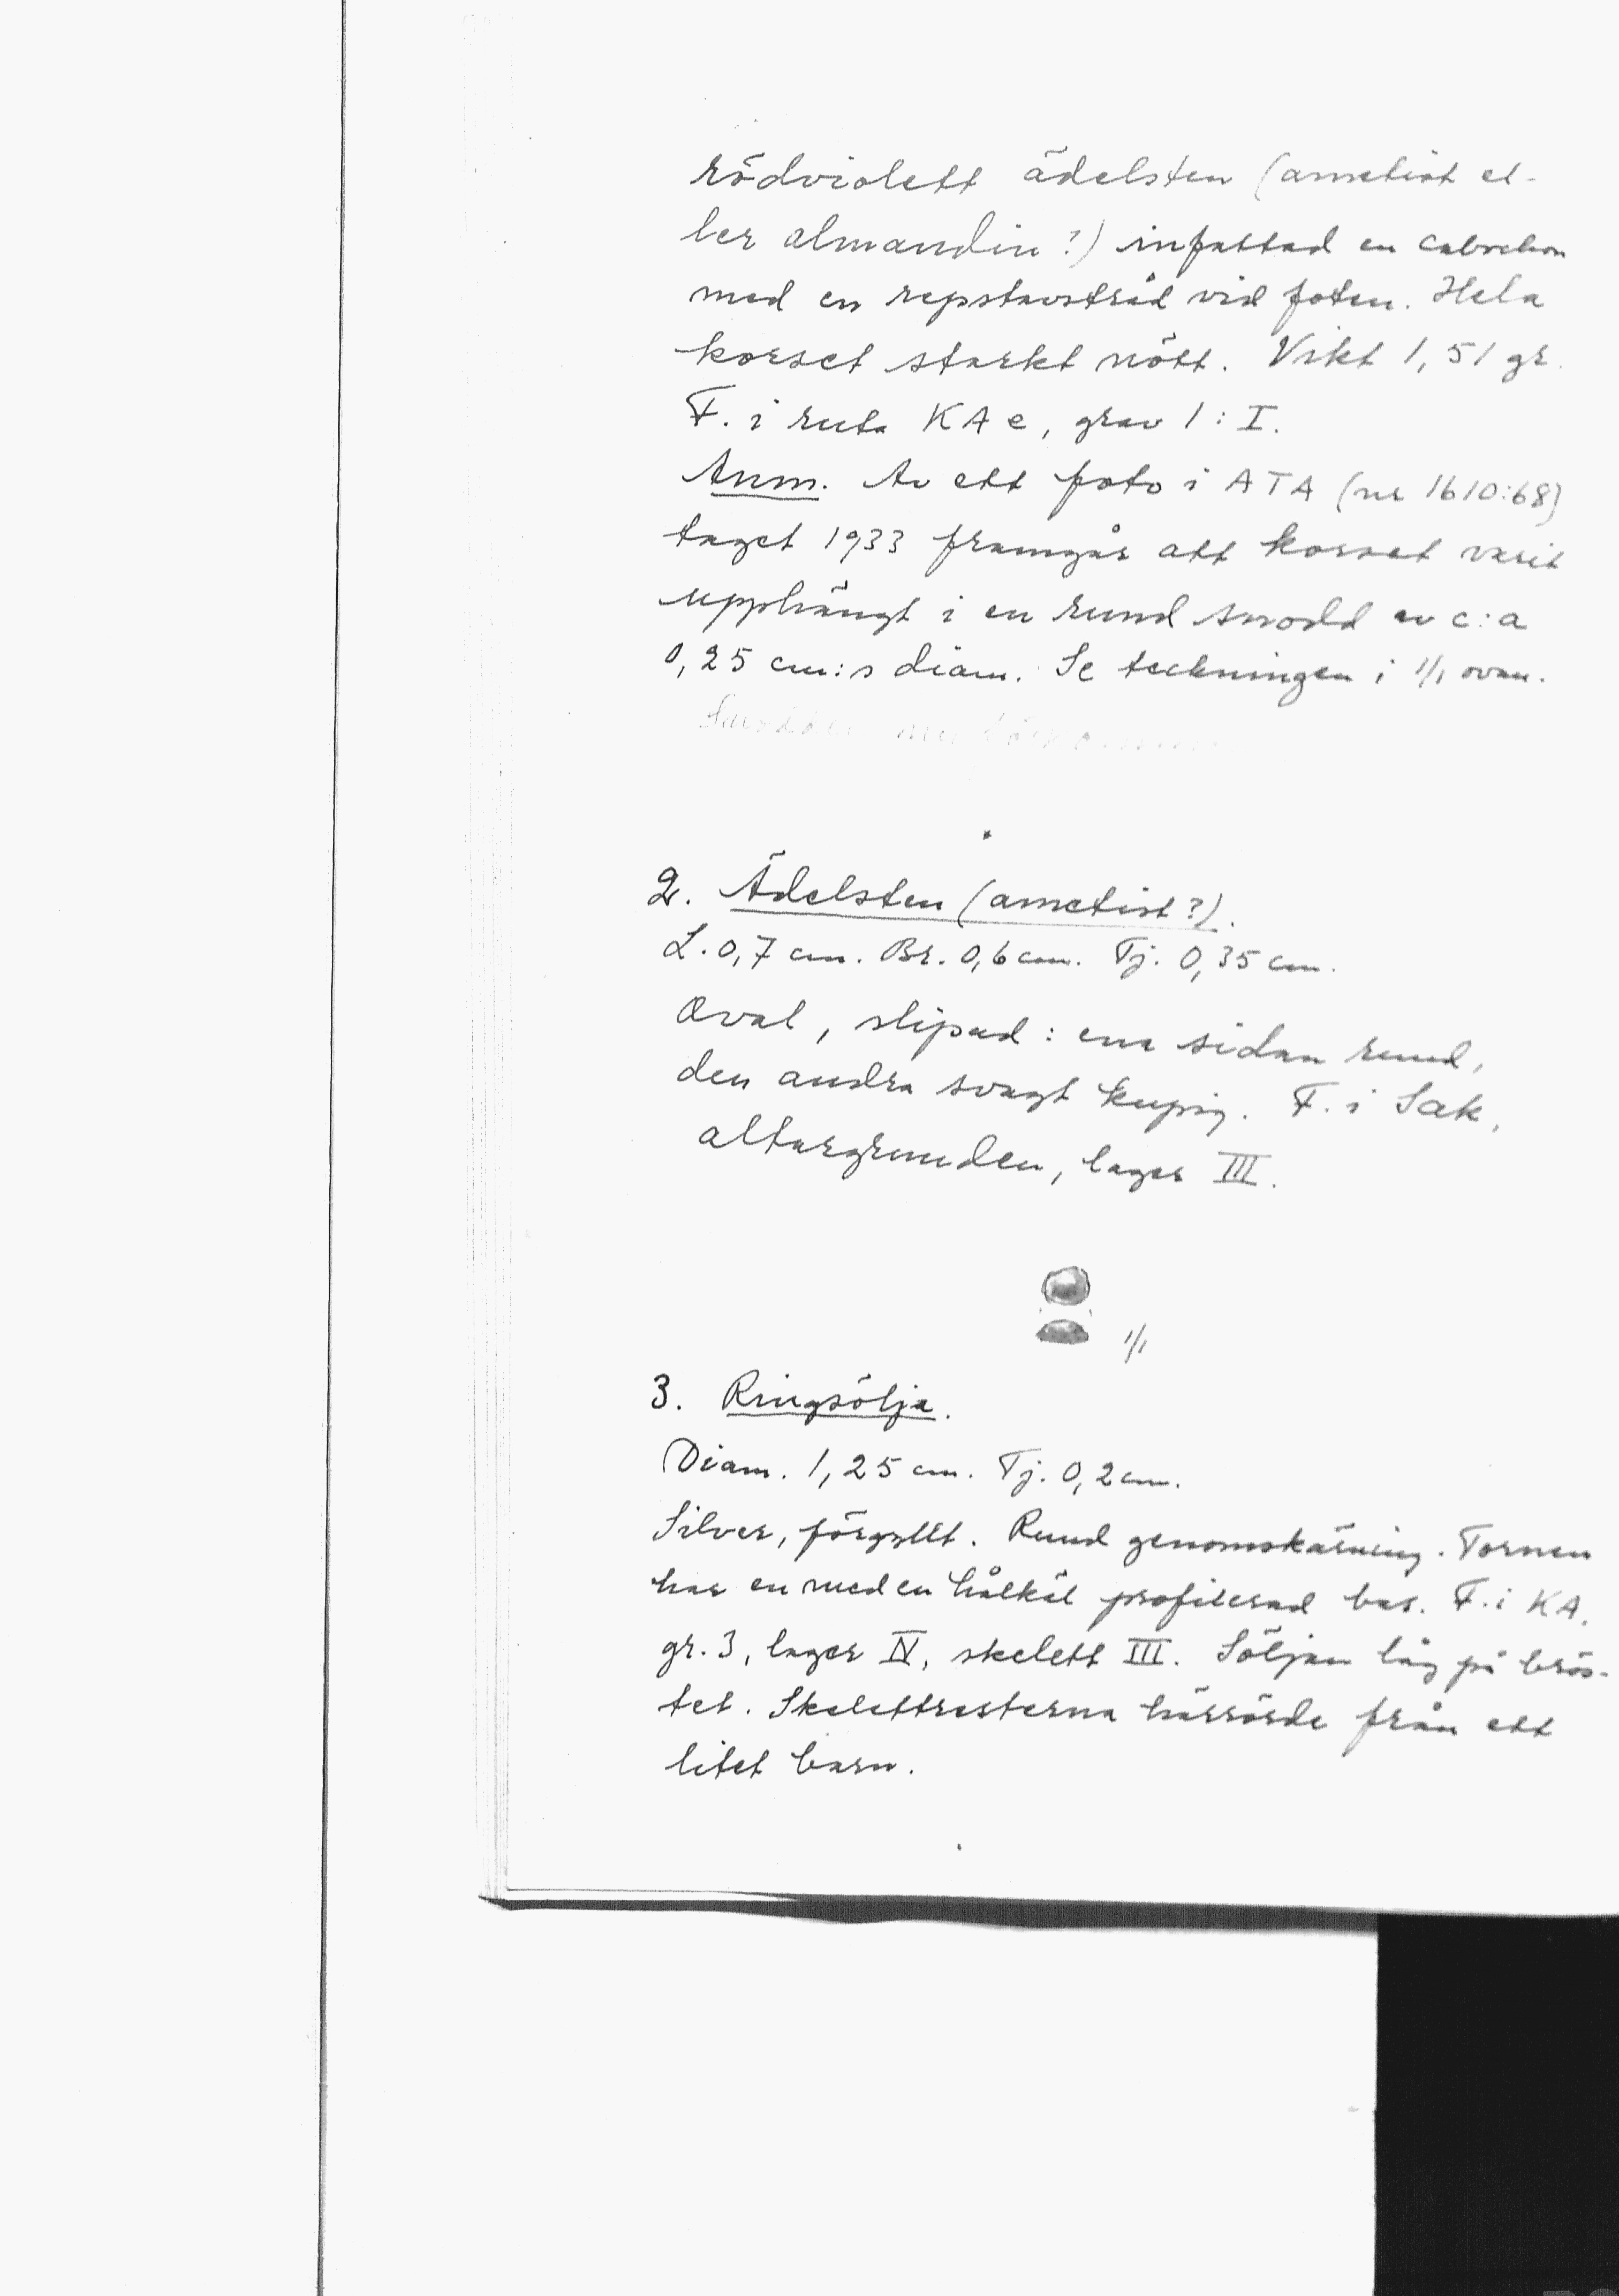 rödviolett ädelsten (ametist el-
ler almandin?) infattad en cabochon
med en repstavstråd vid foten. Hela
korset starkt nött. Vikt 1,51 gr.
F. i ruta KA e, grav 1 : I.
Anm. Av ett foto i ATA (nr 1610:68)
taget 1933 framgår att korset varit
upphängt i en rund snodd av c:a
0,25 cm:s diam. Se teckningen i 1/1 ovan.
2. Ädelsten (ametist?).
L. 0,7 cm. Br. 0,6 cm. Tj. 0,35 cm.
Oval, slipad : ena sidan rund,
den andra svagt kupig. F. i Sak,
altargrunden, lager III.
1/1
3. Ringsölja.
Diam. 1,25 cm. Tj. 0,2 cm.
Silver, förgyllt. Rund genomskärning. Tornen
har en med en hålkäl profilerad bas. F. i KA,
gr. 3, lager IV, skelett III. Söljan låg på brös-
tet. Skelettresterna härrörde från ett
litet barn.